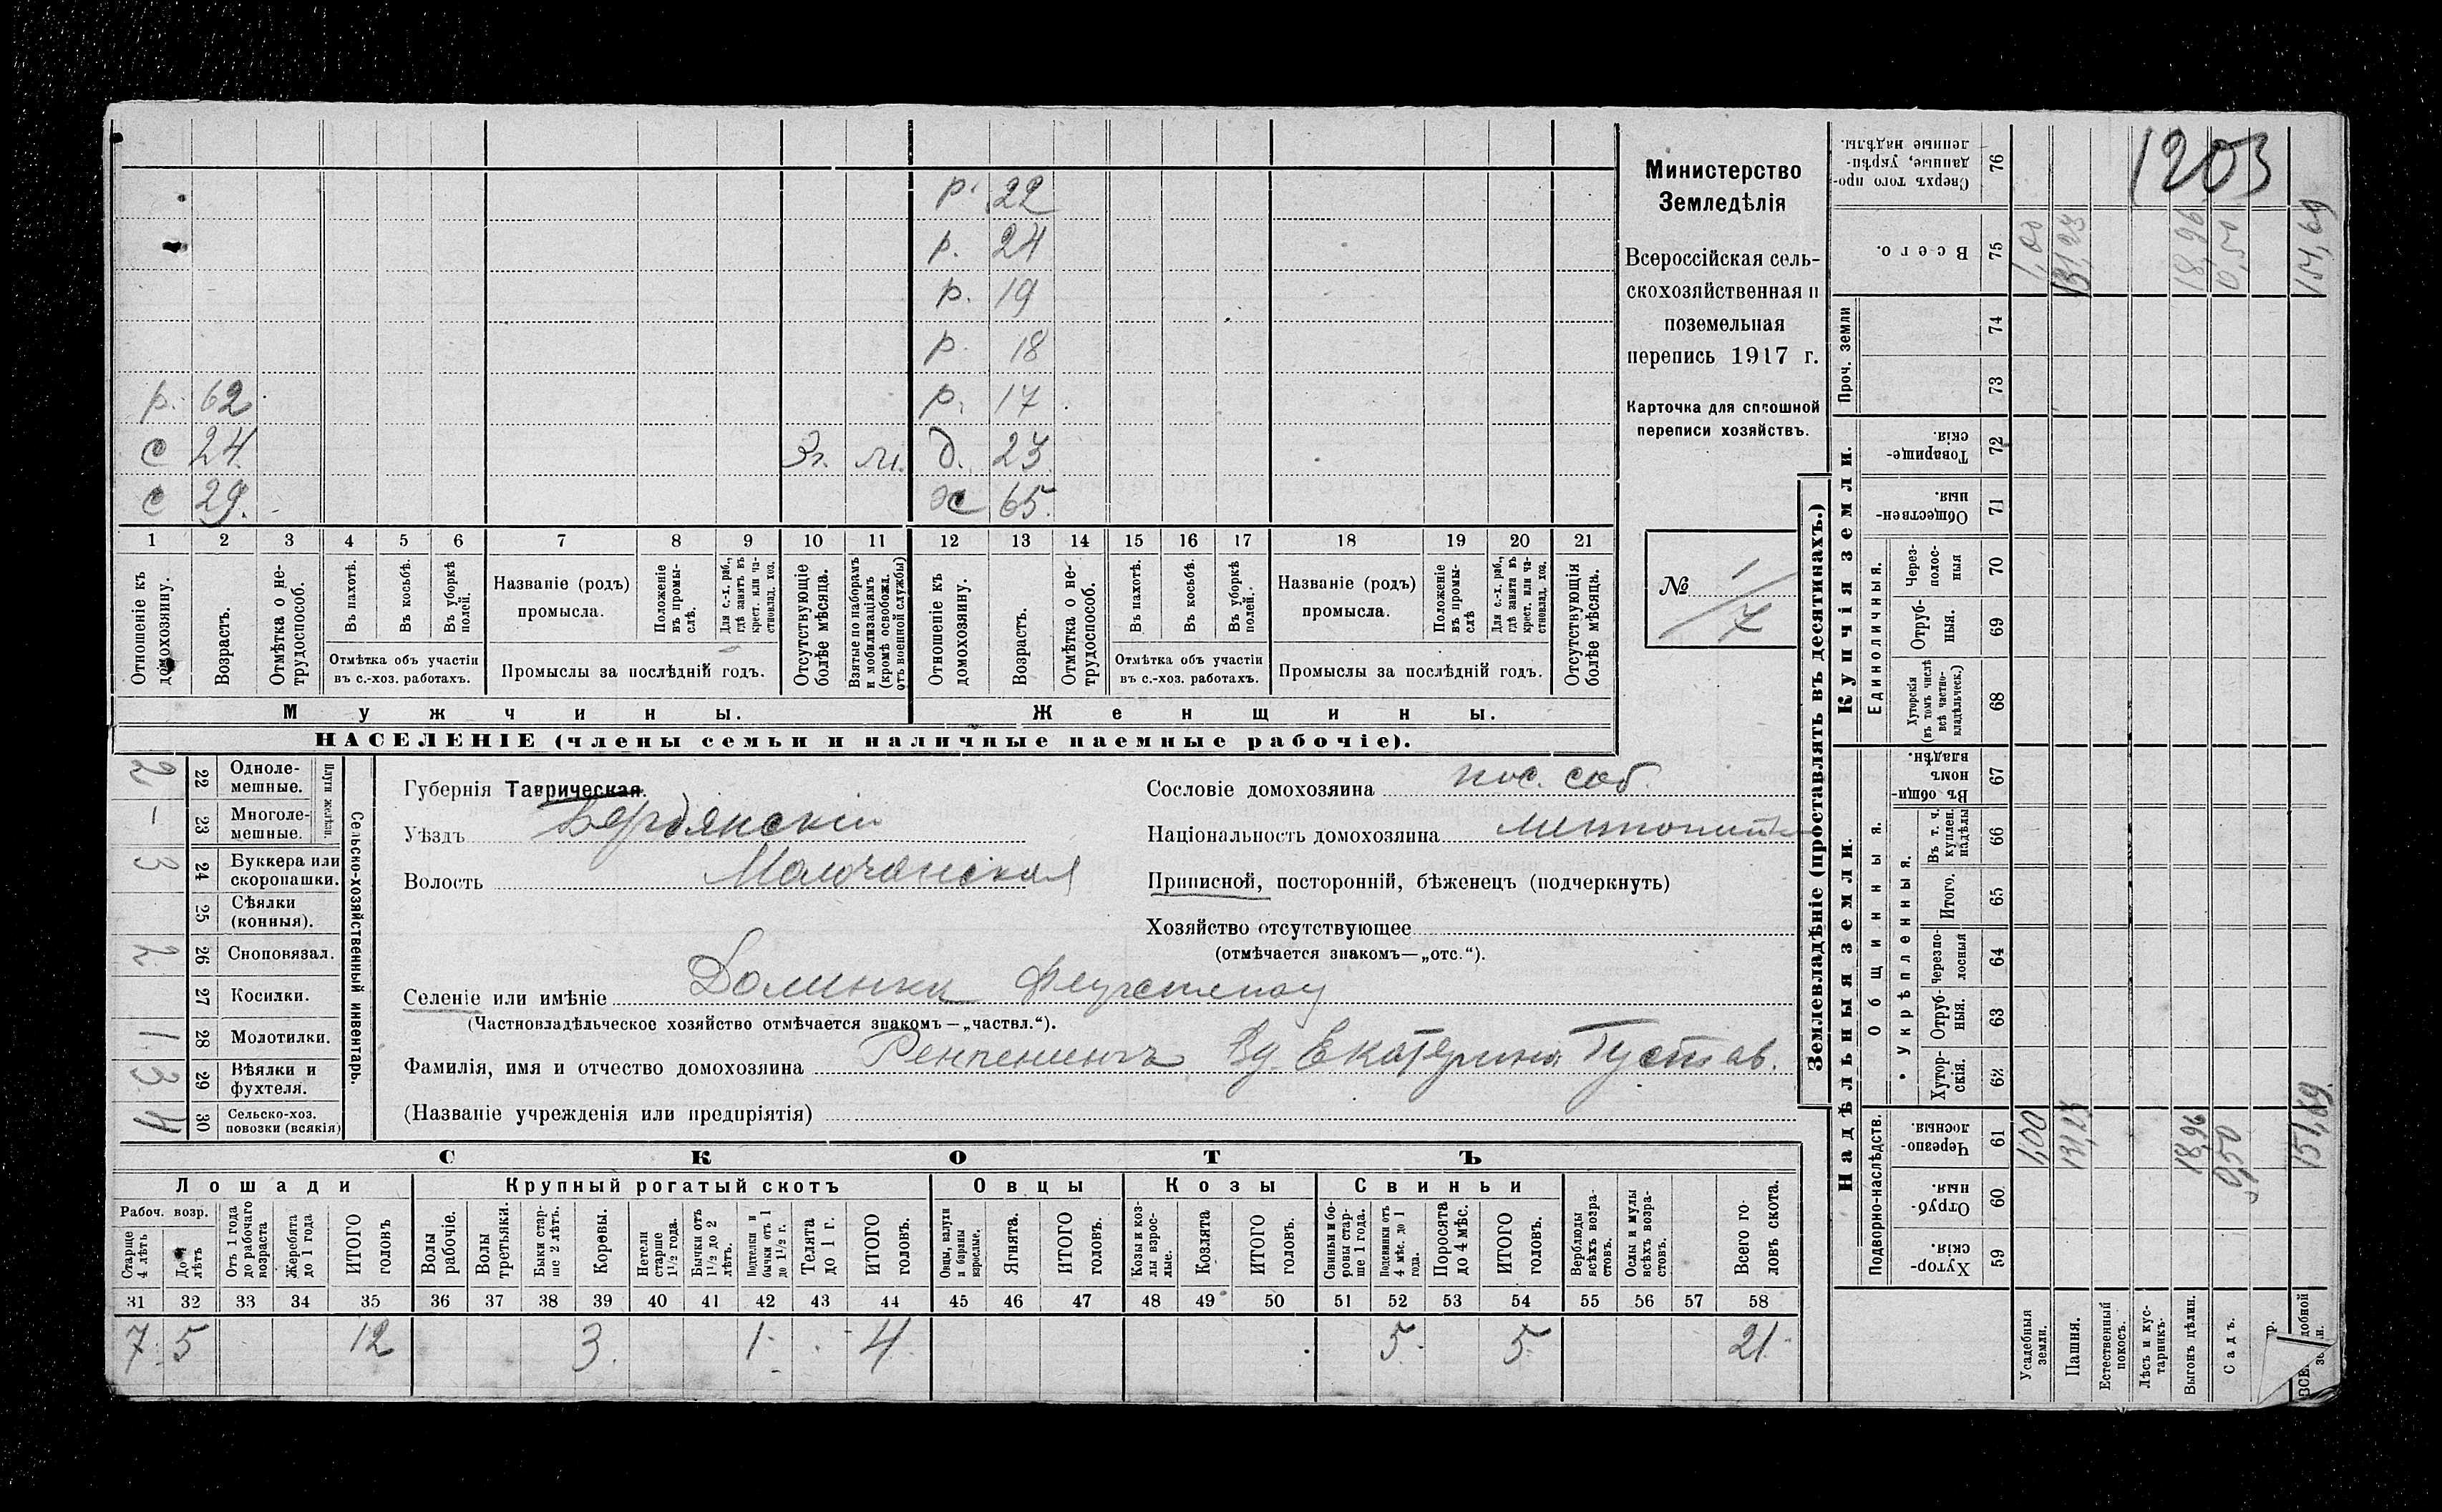 р. 22
р. 24
р. 19
р. 18
р. 62 р. 17
с 24 3г. м. д. 23
с 29. ж 65.
1 2 3 4 5 6 7 8 9 10 11 12 13 14 15 16 17 18 19 20 21
Отношеніе къ домохозяину.
Возрастъ.
Отмѣтка о нетрудоспособ.
Въ пахотѣ.
Въ косьбѣ.
Въ уборкѣ полей.
Отмѣтка объ участіи
въ с.-хоз. работахъ.
Названіе (родъ)
промысла.
Положеніе въ промыслѣ.
Для с.-х. раб., гдѣ занятъ въ крест. или частновлад. хоз.
Промыслы за послѣдній годъ.
Отсутствующіе болѣе мѣсяца.
Взятые по наборамъ и мобилизаціямъ (кромѣ освобожд. отъ военной службы)
Отношеніе къ домохозяину.
Возрастъ.
Отмѣтка о нетрудоспособ.
Въ пахотѣ.
Въ косьбѣ.
Въ уборкѣ полей.
Отмѣтка объ участіи
въ с.-хоз. работахъ.
Названіе (родъ)
промысла.
Положеніе въ промыслѣ
Для с.-х. раб., гдѣ занята въ крест. или частновлад. хоз.
Промыслы за послѣдній годъ.
Отсутствующія болѣе мѣсяца.
Мужчины. Женщины.
НАСЕЛЕНІЕ (члены семьи и наличные наемные рабочіе).
Министерство
Земледѣлія
Всероссійская сель-
скохозяйственная и
поземельная
перепись 1917 г.
Карточка для сплошной
переписи хозяйствъ.
№ 1/7
Сельско-хозяйственный инвентарь.
Плуги желѣзн.
2 22 Одноле-
мешные.
– 23 Многоле-
мешные.
3 24 Буккера или
скоропашки.
25 Сѣялки
(конныя).
2 26 Сноповязал.
27 Косилки.
1 28 Молотилки.
3 29 Вѣялки и
фухтеля.
4 30 Сельско-хоз.
повозки (всякія)
Губернія Таврическая.
Уѣздъ Бердянскій
Волость Молочанская
Селеніе или имѣніе Долинки
(Частновладѣльческое хозяйство отмѣчается знакомъ—„частвл.“).
Фамилія, имя и отчество домохозяина Ремпенингъ Вд. Екатерина Густав.
(Названіе учрежденія или предпріятія)
Сословіе домохозяина пос. соб.
Національность домохозяина меннонит
Приписной, посторонній, бѣженецъ (подчеркнуть)
Хозяйство отсутствующее
(отмѣчается знакомъ—„отс.“).
СКОТЪ
Лошади Крупный рогатый скотъ Овцы Козы Свиньи
Рабоч. возр.
Старше 4 лѣтъ
До 4 лѣтъ
Отъ 1 года до рабочаго возраста
Жеребята до 1 года
ИТОГО головъ
Волы рабочіе.
Волы третьяки.
Быки старше 2 лѣтъ.
Коровы.
Нетели старше 1½ года.
Бычки отъ 1½ до 2 лѣтъ.
Подтелки и бычки отъ 1 до 1½ г.
Телята до 1 г.
ИТОГО головъ.
Овцы, валухи и бараны взрослые.
Ягнята.
ИТОГО головъ.
Козы и козлы взрослые.
Козлята
ИТОГО головъ.
Свиньи и боровы старше 1 года.
Подсвинки отъ 4 мѣс. до 1 года.
Поросята до 4 мѣс.
ИТОГО головъ.
Верблюды всѣхъ возрастовъ.
Ослы и мулы всѣхъ возрастовъ.
Всего головъ скота.
31 32 33 34 35 36 37 38 39 40 41 42 43 44 45 46 47 48 49 50 51 52 53 54 55 56 57 58
7 5 12 3. 1 4 5 5 21
Землевладѣніе (проставлять въ десятинахъ.)
Купчія земли.
Надѣльныя земли.
Проч. земли
Единоличныя.
Общинныя.
Укрѣпленныя.
Подворно-наслѣдств.
1203
Сверхъ того проданные, укрѣпленные надѣлы. 76
Всего. 75 1,00 131,23 18,96 0,50 151,69
74
73
Товарищескія. 72
Общественныя. 71
Черезполосныя 70
Отрубныя. 69
Хуторскія (въ томъ числѣ всѣ частновладѣльческ.) 68
Въ общинномъ владѣн. 67
Въ т. ч. куплен. надѣлы 66
Итого. 65
черезполосныя 64
Отрубныя. 63
Хуторскія. 62
Черезполосныя. 61 1,00 131,23 18,96 0,50 151,69.
Отрубныя. 60
Хуторскія. 59
Усадебныя земли.
Пашня.
Естественный покосъ.
Лѣсъ и кустарникъ.
Выгонъ цѣлин.
Садъ.